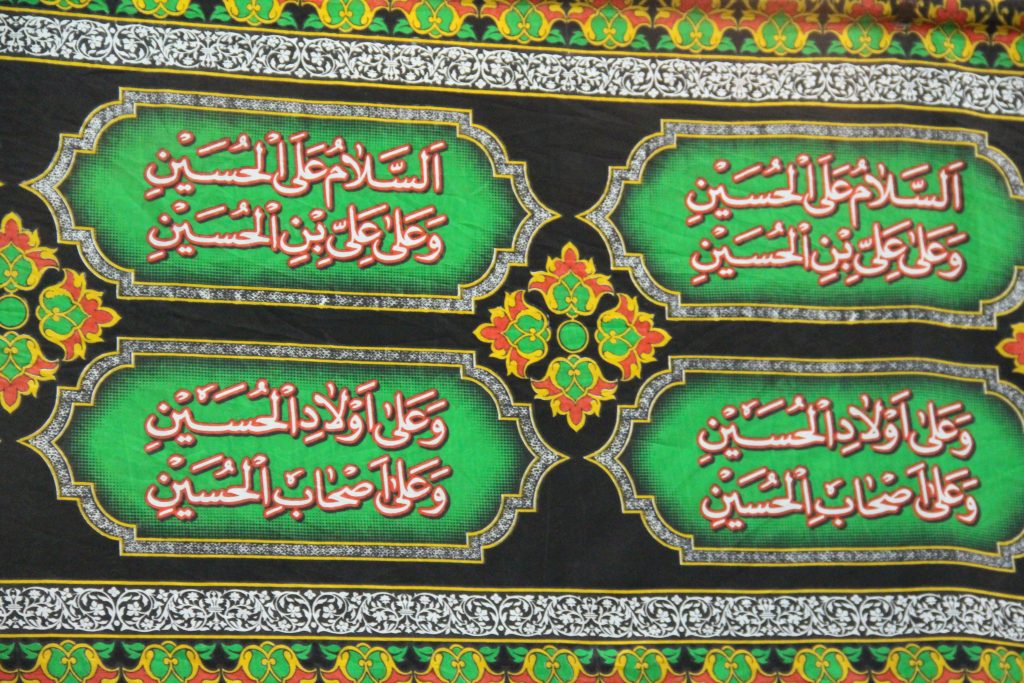 اَلسَّلامُ عَلَى الْحُسَيْنِ
وَعَلىٰ عَلِىِّ بْنِ الْحُسَيْنِ
اَلسَّلامُ عَلَى الْحُسَيْنِ
وَعَلىٰ عَلِىِّ بْنِ الْحُسَيْنِ
وَعَلىٰ اَوْلادِ الْحُسَيْنِ
وَعَلىٰ اَصْحابِ الْحُسَيْنِ
وَعَلىٰ اَوْلادِ الْحُسَيْنِ
وَعَلىٰ اَصْحابِ الْحُسَيْنِ